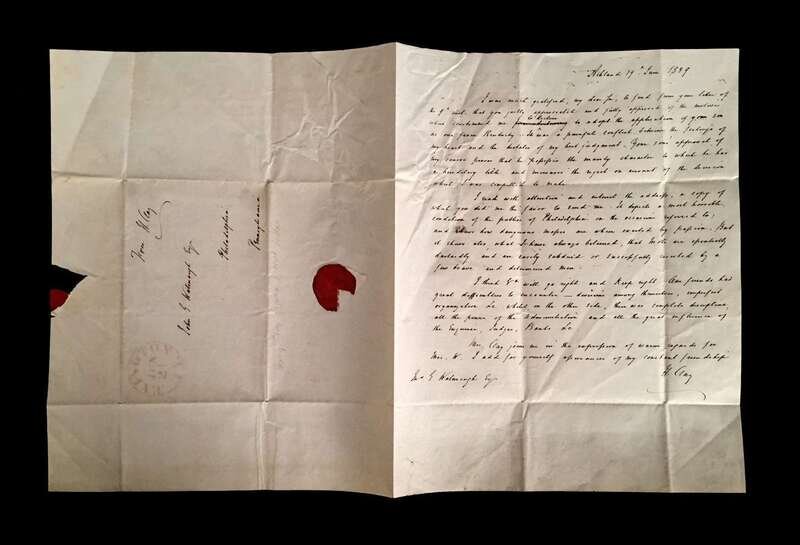 From H. Clay
John G Watmough Esq.
Philadelphia
Pennsylvania
Ashland 19th June 1839
I was much gratified, my dear Sir, to find from your letter of
the 9th inst. that you justly appreciated and fully approved of the motives
when constrained me to adopt the application of your son
as one from Kentucky. It was a painful conflict between the feelings of
my heart and the dictates of my best judgment. Your son's approval of
my course proves that he possesses the manly character to which he has
a hereditary title and increases the regret on account of the decision
which I was compelled to make.
I read with attention and interest the address, a copy of
which you did me the favor to send me. It depicts a most horrible
condition of the public of Philadelphia on the occasion referred to;
and shews how dangerous masses are when excited by passion. But
it shows also, what I have always believed, that mobs are essentially
dastardly and are easily subdued or successfully resisted by a
few brave and determined men.
I think Va. will go right and keep right. Our friends had
great difficulties to encounter — divisions among themselves, imperfect
organization &c whilst on the other side, there was complete discipline
all the power of the Administration and all the great influence of
the Enquirer, Judges, Banks &c
Mrs. Clay joins me in the expression of warm regards for
Mrs. W. I add for yourself assurances of my constant friendship
H. Clay
Jno G Watmough Esq.